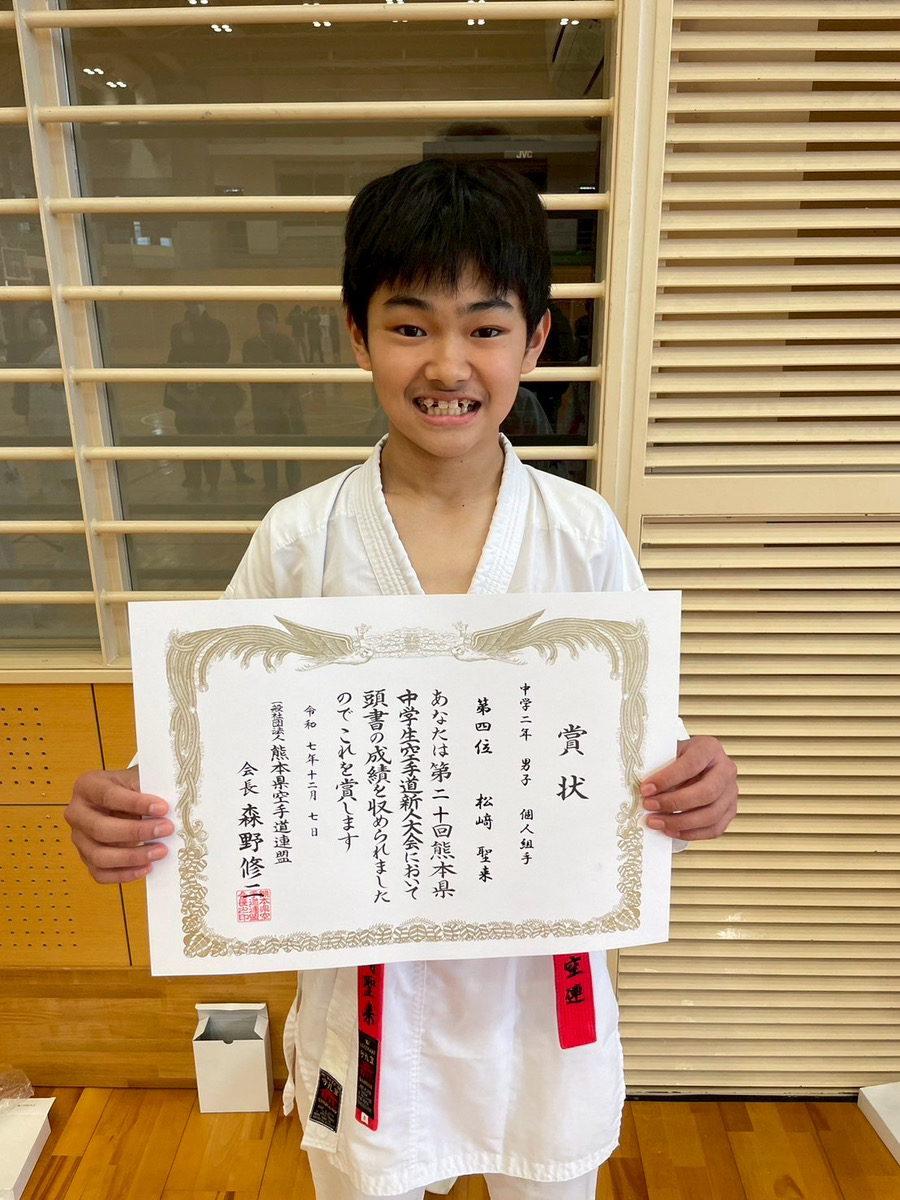 JVC
賞状
中学二年 男子 個人組手
第四位 松﨑 聖来
あなたは第二十回熊本県
中学生空手道新人大会において
頭書の成績を収められました
のでこれを賞します
令和 七年十二月 七日
一般社団法人 熊本県空手道連盟
会長 森野修二
聖来
空連